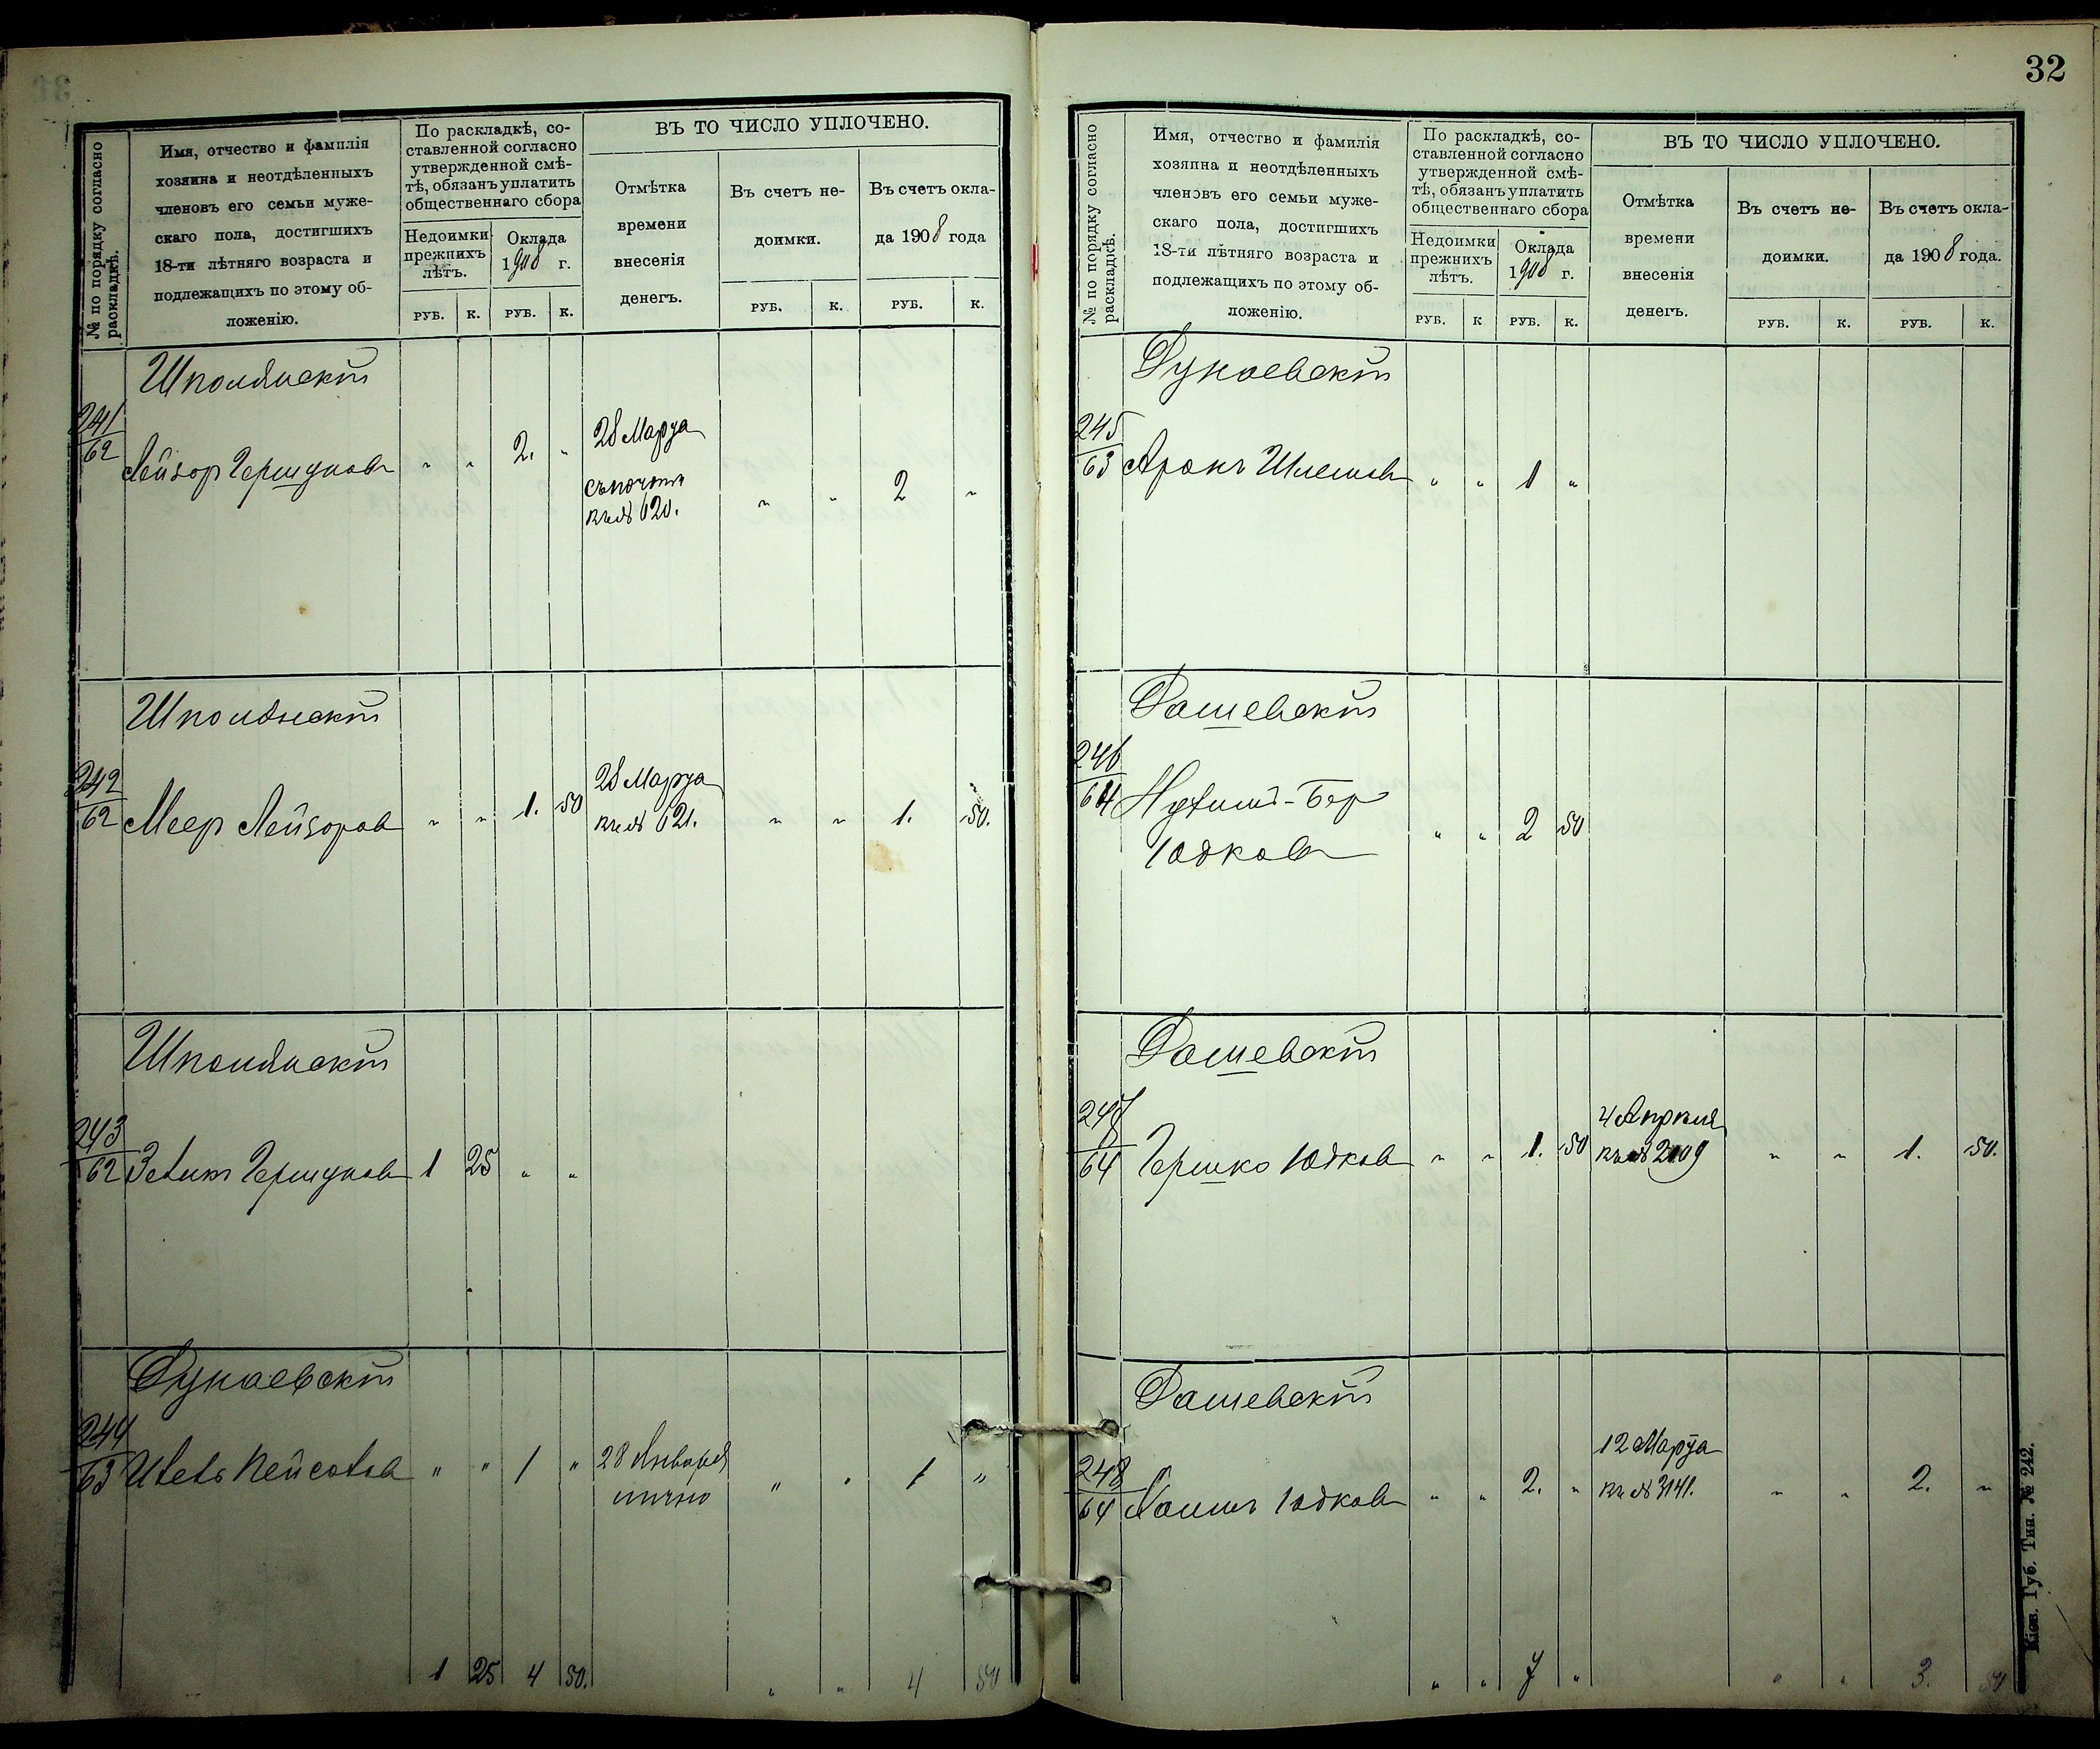 32
№ по порядку согласно раскладкѣ.
Имя, отчество и фамилія
хозяина и неотдѣленныхъ
членовъ его семьи муже-
скаго пола, достигшихъ
18-ти лѣтняго возраста и
подлежащихъ по этому об-
ложенію.
По раскладкѣ, со-
ставленной согласно
утвержденной смѣ-
тѣ, обязанъ уплатить
общественнаго сбора
Недоимки
прежнихъ
лѣтъ.
Оклада
1908 г.
РУБ. К. РУБ. К.
ВЪ ТО ЧИСЛО УПЛОЧЕНО.
Отмѣтка
времени
внесенія
денегъ.
Въ счетъ не-
доимки.
Въ счетъ окла-
да 1908 года
РУБ. К. РУБ. К.
Шполянскій
241/62 Лейзор Гершунов " " 2. " 28 Марта
кв № 620. " " 2 "
Шполянскій
242/62 Меер Лейзоров " " 1. 50 28 Марта
кв № 621. " " 1. 50.
Шполянскій
243/62 Гершунов 1 25 " "
Дунаевскій
244/63 Пейсахов " " 1 " 28 Января
лично " " 1 "
1 25 4 50. " " 4 50
№ по порядку согласно раскладкѣ.
Имя, отчество и фамилія
хозяина и неотдѣленныхъ
членовъ его семьи муже-
скаго пола, достигшихъ
18-ти лѣтняго возраста и
подлежащихъ по этому об-
ложенію.
По раскладкѣ, со-
ставленной согласно
утвержденной смѣ-
тѣ, обязанъ уплатить
общественнаго сбора
Недоимки
прежнихъ
лѣтъ.
Оклада
1908 г.
РУБ. К РУБ. К.
ВЪ ТО ЧИСЛО УПЛОЧЕНО.
Отмѣтка
времени
внесенія
денегъ.
Въ счетъ не-
доимки.
Въ счетъ окла-
да 1908 года.
РУБ. К. РУБ. К.
Дунаевскій
245/63 Аронъ Шлемов " " 1 "
Дашевскій
246/64 Нухим-Бер
Юдков " " 2 50
Дашевскій
247/64 Гершко Юдков " " 1. 50 4 Апреля
кв № 2109 " " 1. 50.
Дашевскій
248/64 Хаимъ Юдков " " 2. " 12 Марта
кв № 3141. " " 2. "
" " 7 " " " 3. 50
Кіев. Губ. Тип. № 242.